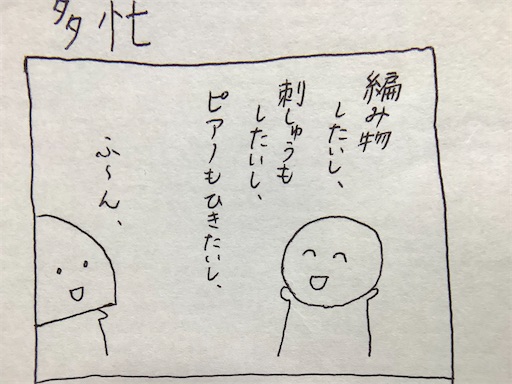 多忙
編み物
したいし、
刺しゅうも
したいし、
ピアノもひきたいし、
ふ〜ん、